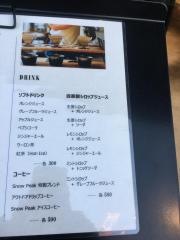 DRINK
ソフトドリンク
オレンジジュース
グレープフルーツジュース
アップルジュース
ペプシコーラ
ジンジャーエール
ウーロン茶
紅茶
各 300
コーヒー
Snow Peak 特製ブレンド
アウトドアドリップコーヒー
Snow Peak アイスコーヒー
各 500
シロップジュース
生姜シロップ
+ オレンジジュース
生姜シロップ
+ ソーダ
レモンシロップ
+ オレンジジュース
レモンシロップ
+ ジンジャーエール
ミントシロップ
+ トニックソーダ
ミントシロップ
+ グレープフルーツジュース
各 500